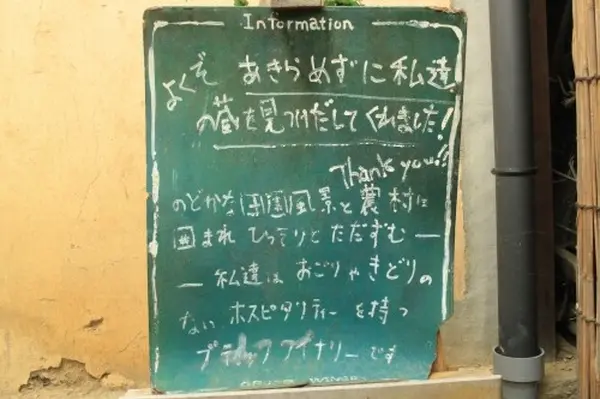 Information
よくぞ あきらめずに私達
の蔵を見つけだしてくれました!
Thank you!!
のどかな田園風景と農村に
囲まれ ひっそりとただずむ ー
ー 私達は おごりやきどりの
ない ホスピタリティーを持つ
ブティックワイナリーです